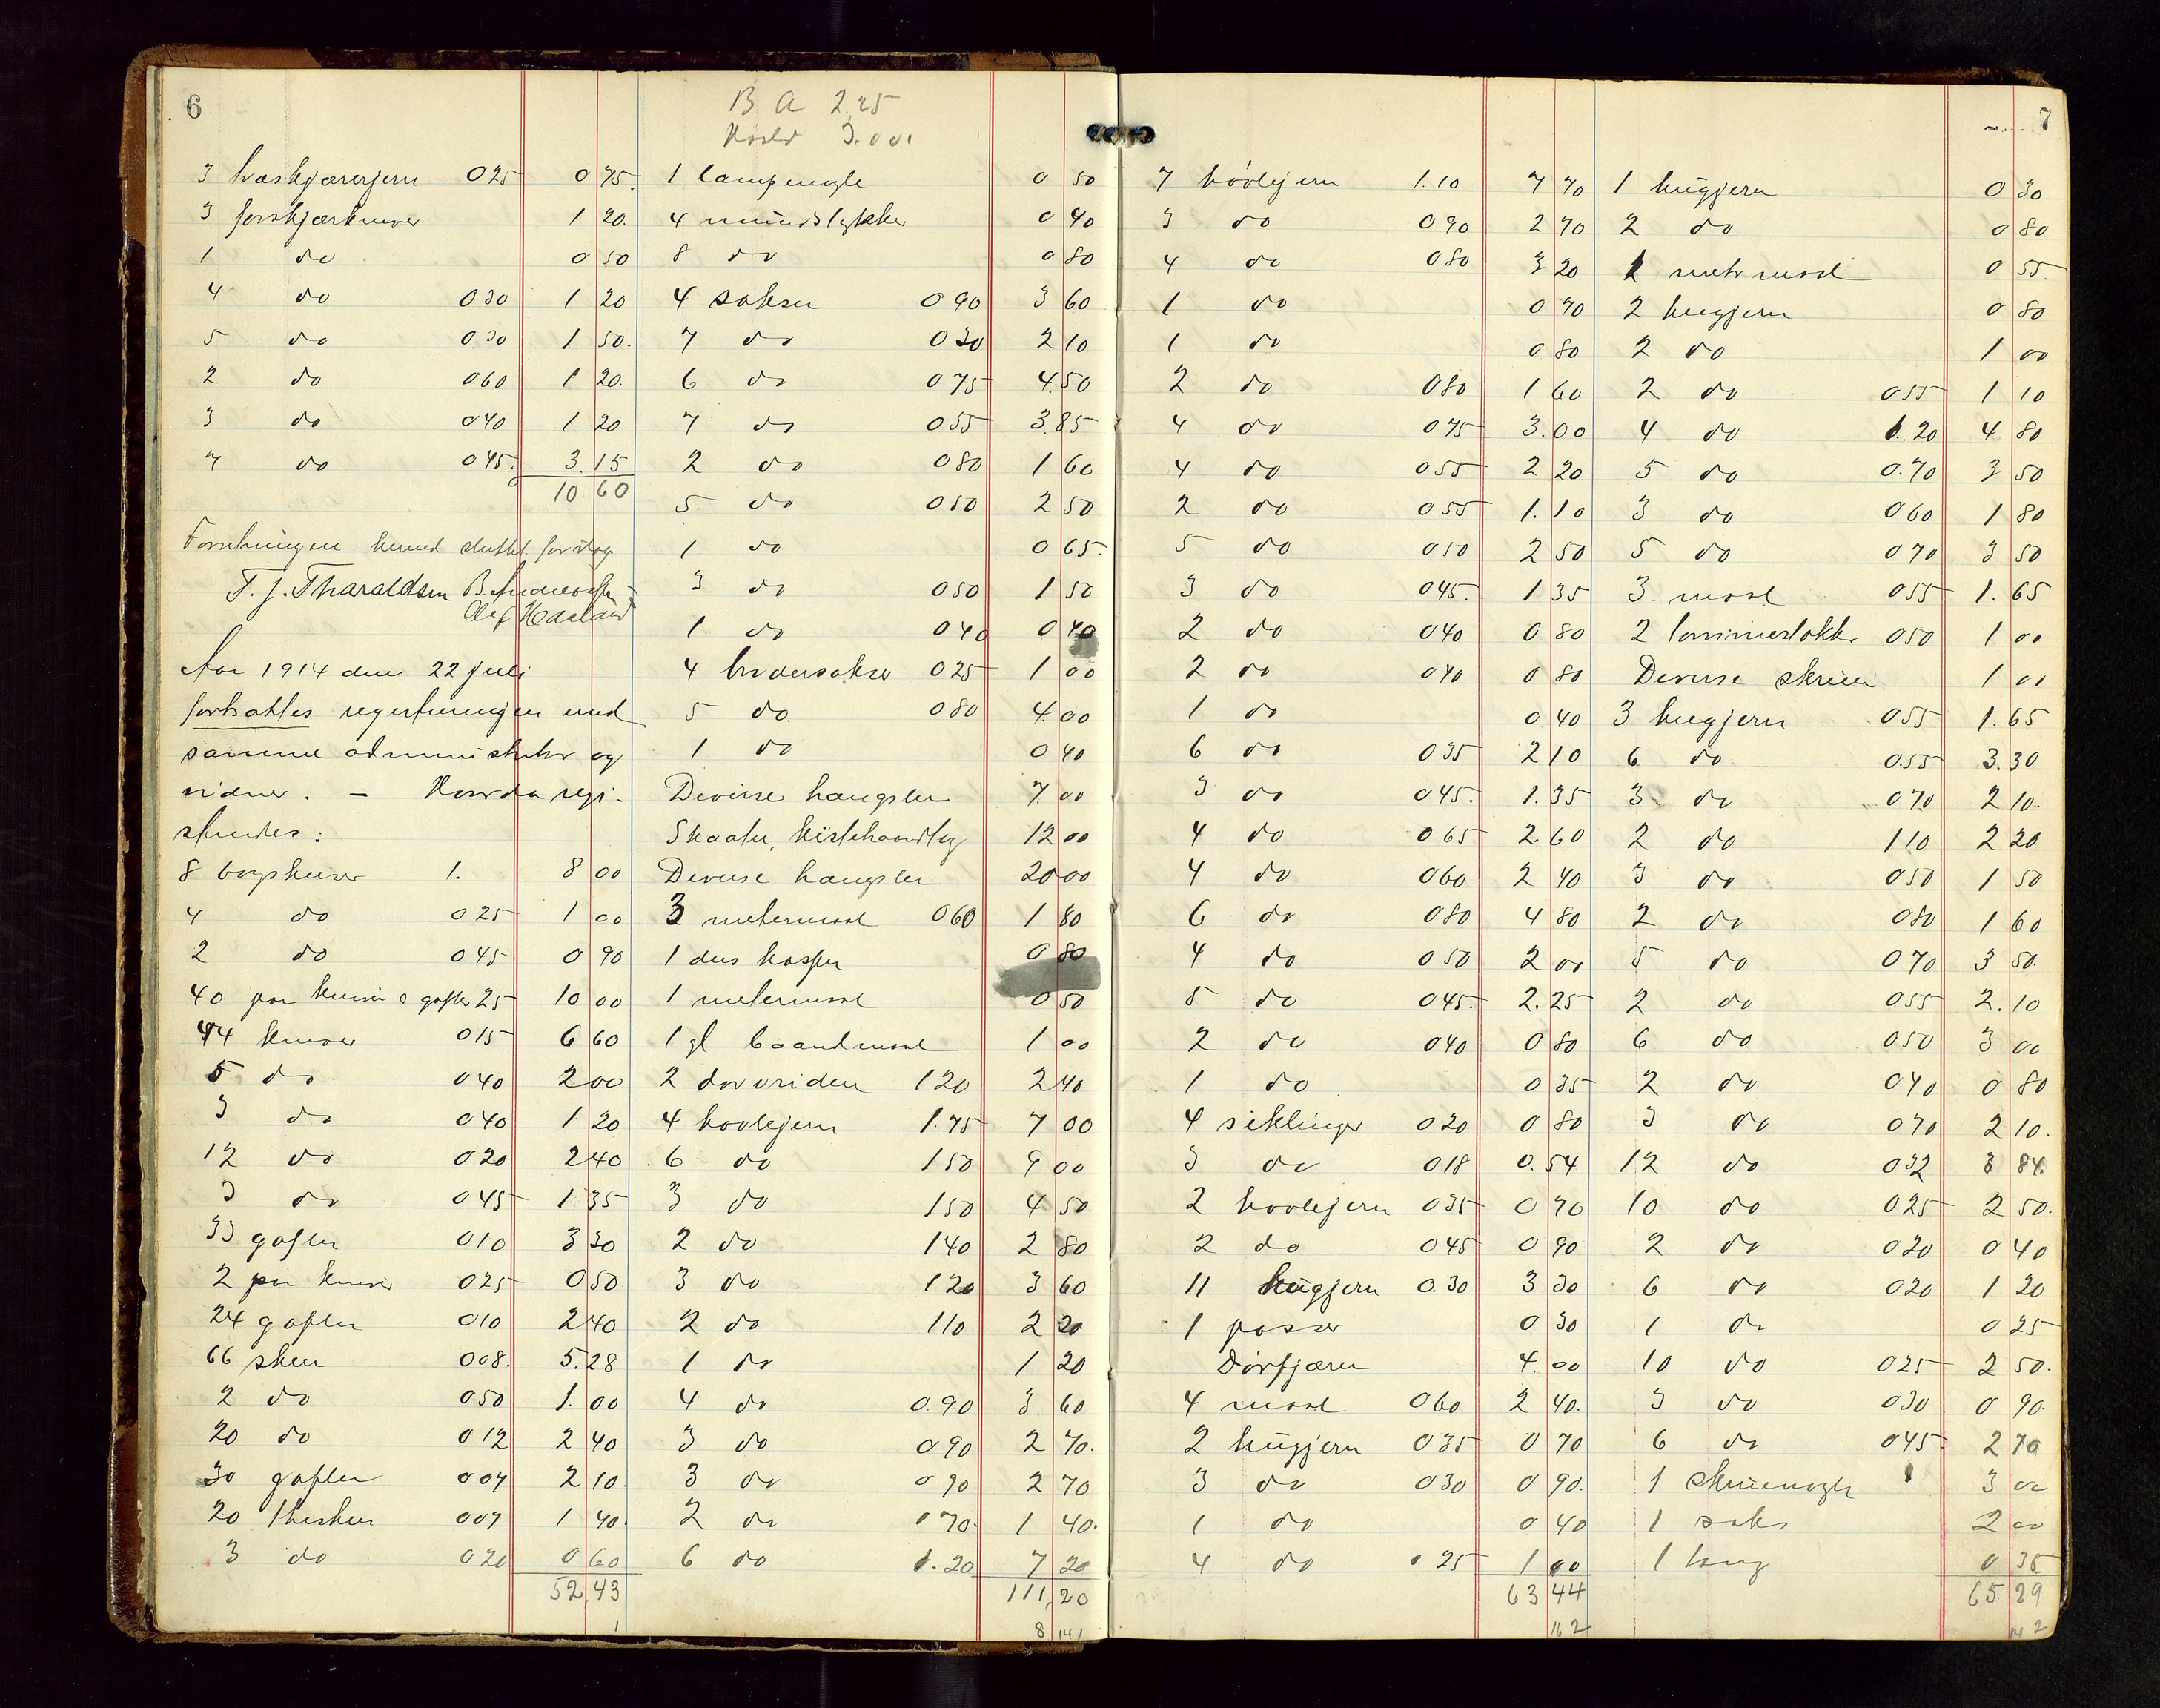 6
B A 2.25
3.00
3 025 0 75.
3 1 20.
1 do 0 50
4 do 030 1 20
5 do 030 1 50.
2 do 060 1 20.
3 do 040 1 20
7 do 045. 3.15
10 60
Forretningen hermed sluttet for idag
T. J. Tharaldsen B. Andreassen
Olaf Haaland
Aar 1914 den 22 juli
fortsattes registreringen med
samme administrator og
vidner. – Hvorda regi-
streredes:
8 1. 8 00
4 do 025 1 00
2 do 045 0 90
40 par knive o gafler 25 10 00
44 kniver 015 6 60
5 do 040 2 00
3 do 040 1 20
12 do 020 2 40
3 do 045 1 35
33 gafler 010 3 30
2 par knive 025 0 50
24 gafler 010 2 40
66 skeer 008. 5.28
2 do 050 1. 00
20 do 012 2 40
30 gafler 007 2 10.
20 theskeer 007 1 40.
3 do 020 0 60
52,43
1
1 lampenogle 0 50
4 mundstykker 0 40
8 do 0 80
4 sakser 0 90 3 60
7 do 030 2 10
6 do 075 4.50
7 do 055 3.85
2 do 080 1 60
5 do 050 2 50
1 do 0 65.
3 do 050 1 50
1 do 040 0 40
4 brodersakse 025 1 00
5 do. 080 4.00
1 do 0 40
Deverse hængsler 7.00
Skaater, kistehaandtag 12 00
Deverse hængsler 20 00
3 metermaal 060 1 80
1 dus kasper 0 80
1 metermaal 0 50
1 gl baandmaal 1 00
2 dovoriden 120 2 40
4 hovlejern 1.75 7 00
6 do 150 9 00
3 do 150 4 50
2 do 140 2 80
3 do 120 3 60
2 do 110 2 20
1 do 1 20
4 do 0.90 3 60
3 do 090 2 70.
3 do 090 2 70
2 do 070. 1 40.
6 do 1.20 7 20
111,20
8
7
7 hovlejern 1.10 7 70
3 do 090 2 70
4 do 080 3 20
1 do 0 70
1 do 0 80
2 do 080 1 60
4 do 075 3.00
4 do 055 2 20
2 do 055 1.10
5 do 050 2 50
3 do 045. 1 35
2 do 040 0 80
2 do 040 0 80
1 do 0 40
6 do 035 2 10
3 do 045. 1.35
4 do 065 2.60
4 do 060 2 40
6 do 080 4 80
4 do 050 2 00
5 do 045. 2.25
2 do 040 0 80
1 do 0 35
4 siklinger 020 0 80
3 do 018 0.54
2 hovlejern 035 0 70
2 do 045 0 90
11 hugjern 0.30 3 30
1 passer 0 30
Dørfjærer 4.00
4 maal 060 2 40.
2 hugjern 035 0 70
3 do 030 0 90.
1 do 0 40
4 do 025 1 00
63 44
16 2
1 hugjern 0 30
2 do 0 80
1 metermaal 0 55.
2 hugjern 0 80
2 do 1 00
2 do 055 1 10
4 do 1.20 4 80
5 do 0.70 3 50
3 do 060 1 80
5 do 070 3 50
3 maal 055 1.65
2 tommerstokke 050 1 00
Deverse skruer 1 00
3 hugjern 055 1.65
6 do 0.55 3.30
3 do 070 2 10.
2 do 110 2 20
3 do 050 1 50
2 do 080 1 60
5 do 070 3 50.
2 do 055 2.10
6 do 050 3 00
2 do 040 0 80
3 do 070 2 10.
12 do 032 3 84.
10 do 025 2 50.
2 do 020 0 40
6 do 020 1 20
1 do 0 25
10 do 025 2 50.
3 do 030 0 90.
6 do 045 2 70
1 skruenogle 3 00
1 saks 2 00
1 0 35
65.29